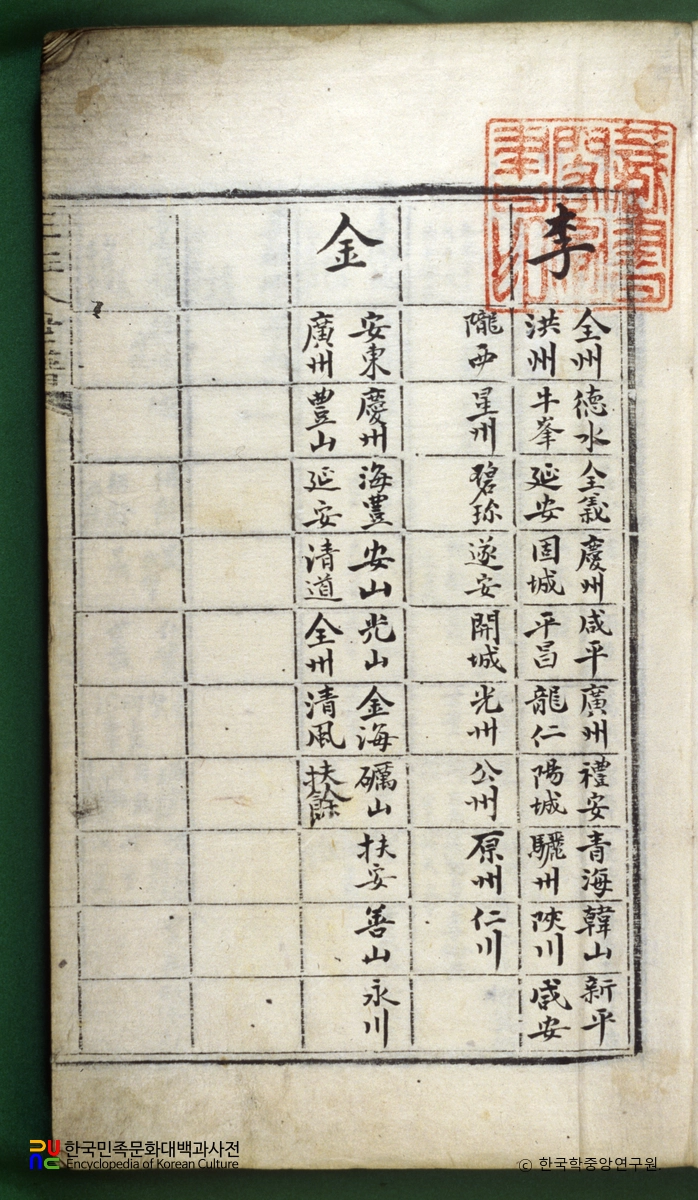 李
全州 德水 全義 慶州 咸平 廣州 禮安 青海 韓山 新平
洪州 牛峯 延安 固城 平昌 龍仁 陽城 驪州 陜川 咸安
隴西 星州 碧珍 遂安 開城 光州 公州 原州 仁川
金
安東 慶州 海豊 安山 光山 金海 礪山 扶安 善山 永川
廣州 豊山 延安 清道 全州 清風 扶餘
한국민족문화대백과사전
Encyclopedia of Korean Culture
© 한국학중앙연구원